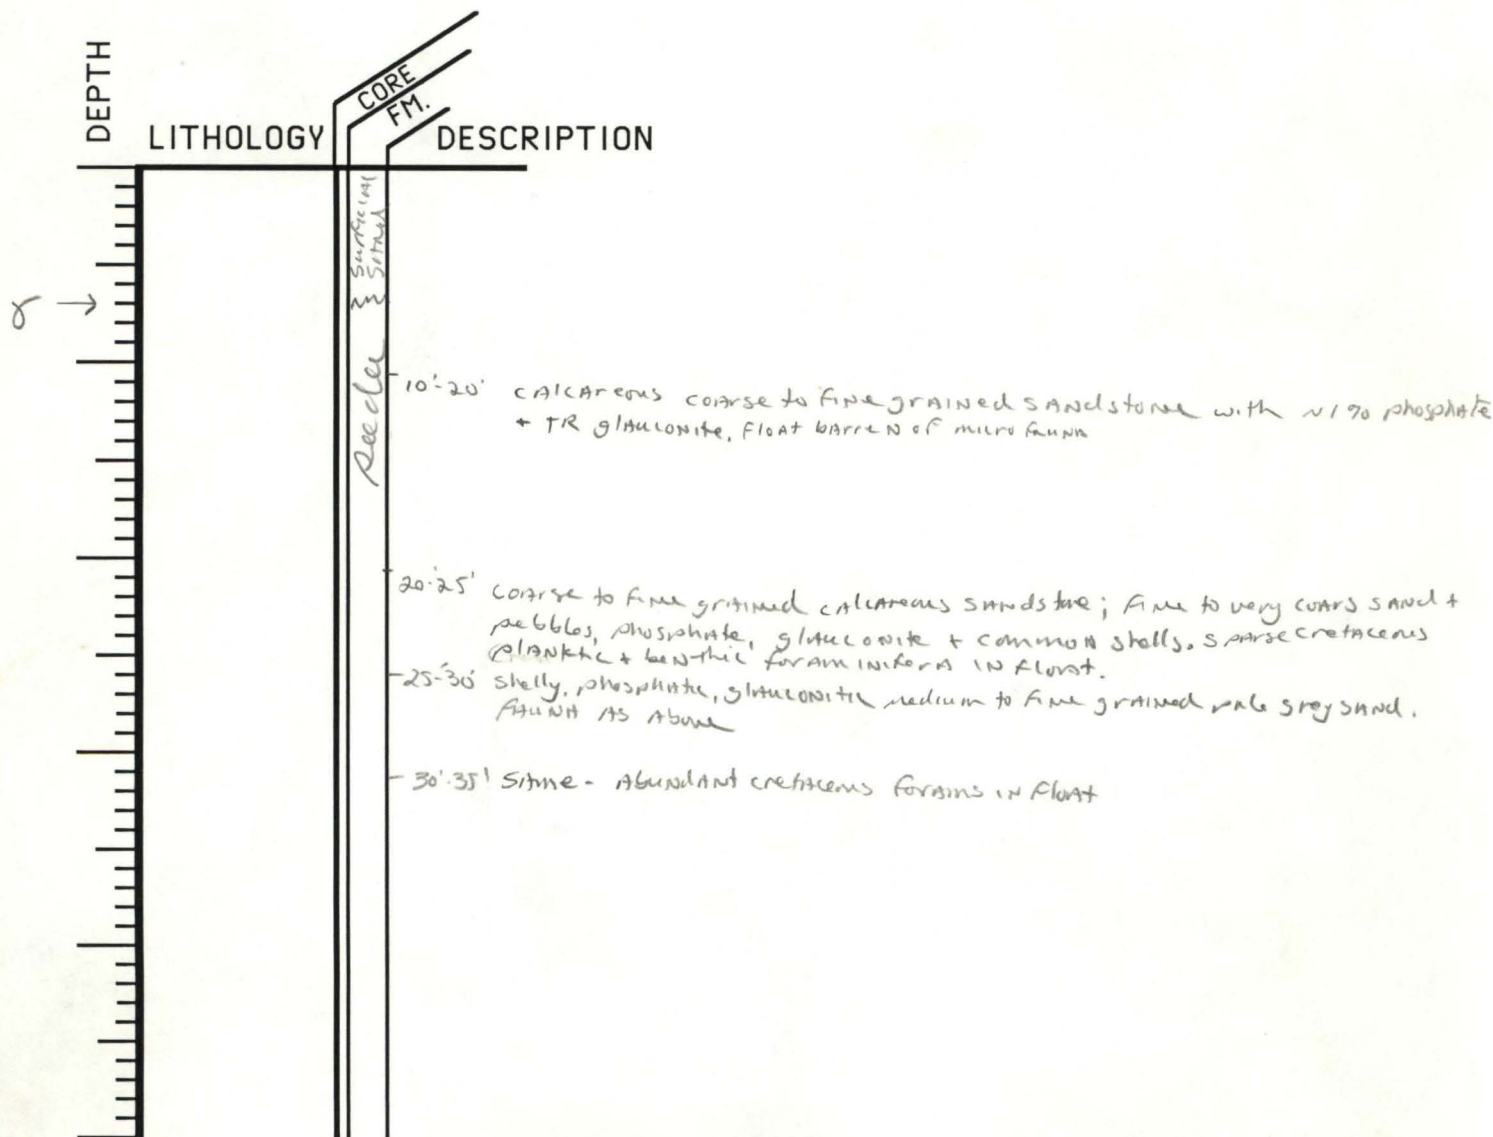 DEPTH
LITHOLOGY
CORE
FM.
DESCRIPTION
Surficial
Peedee
10'-20' calcareous coarse to fine grained sandstone with ~1% phosphate
+ TR glauconite, float barren of microfauna
20-25' coarse to fine grained calcareous sandstone; fine to very coars sand +
pebbles, phosphate, glauconite + common shells. sparse cretaceous
planktic + benthic foraminifera in float.
25-30' shelly, phosphatic, glauconitic medium to fine grained pale grey sand.
fauna as above
30'-35' same - Abundant cretaceous forams in float